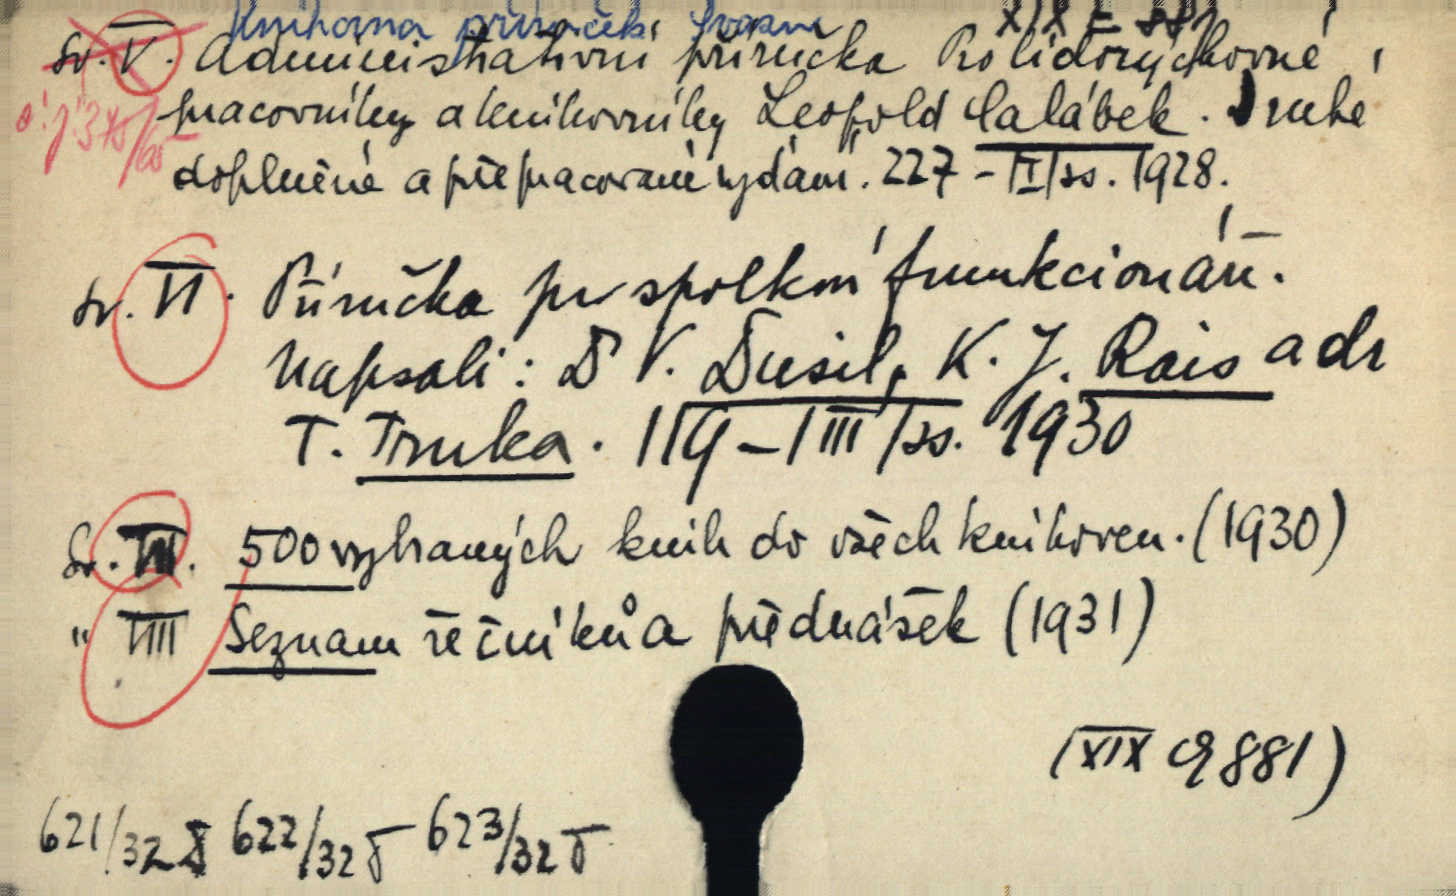 Knihovna příruček Svazu XIX E 881
Sv. V. Administrativní příručka Pro lidovýchovné
pracovníky a knihovníky Leopold Calábek. Druhé
č.j. 375/65
doplněné a přepracované vydání. 227 – II/ss. 1928.
Sv. VI. Příručka pro spolkoví funkcionáři.
Napsali: Dr V. Dusil, K. J. Rais a dr
T. Trnka. 119 – III/ss. 1930
Sv. VII. 500 vybraných knih do všech knihoven. (1930)
" VIII Seznam řečníků a přednášek (1931)
(XIX E 881)
621/32 622/32 623/32